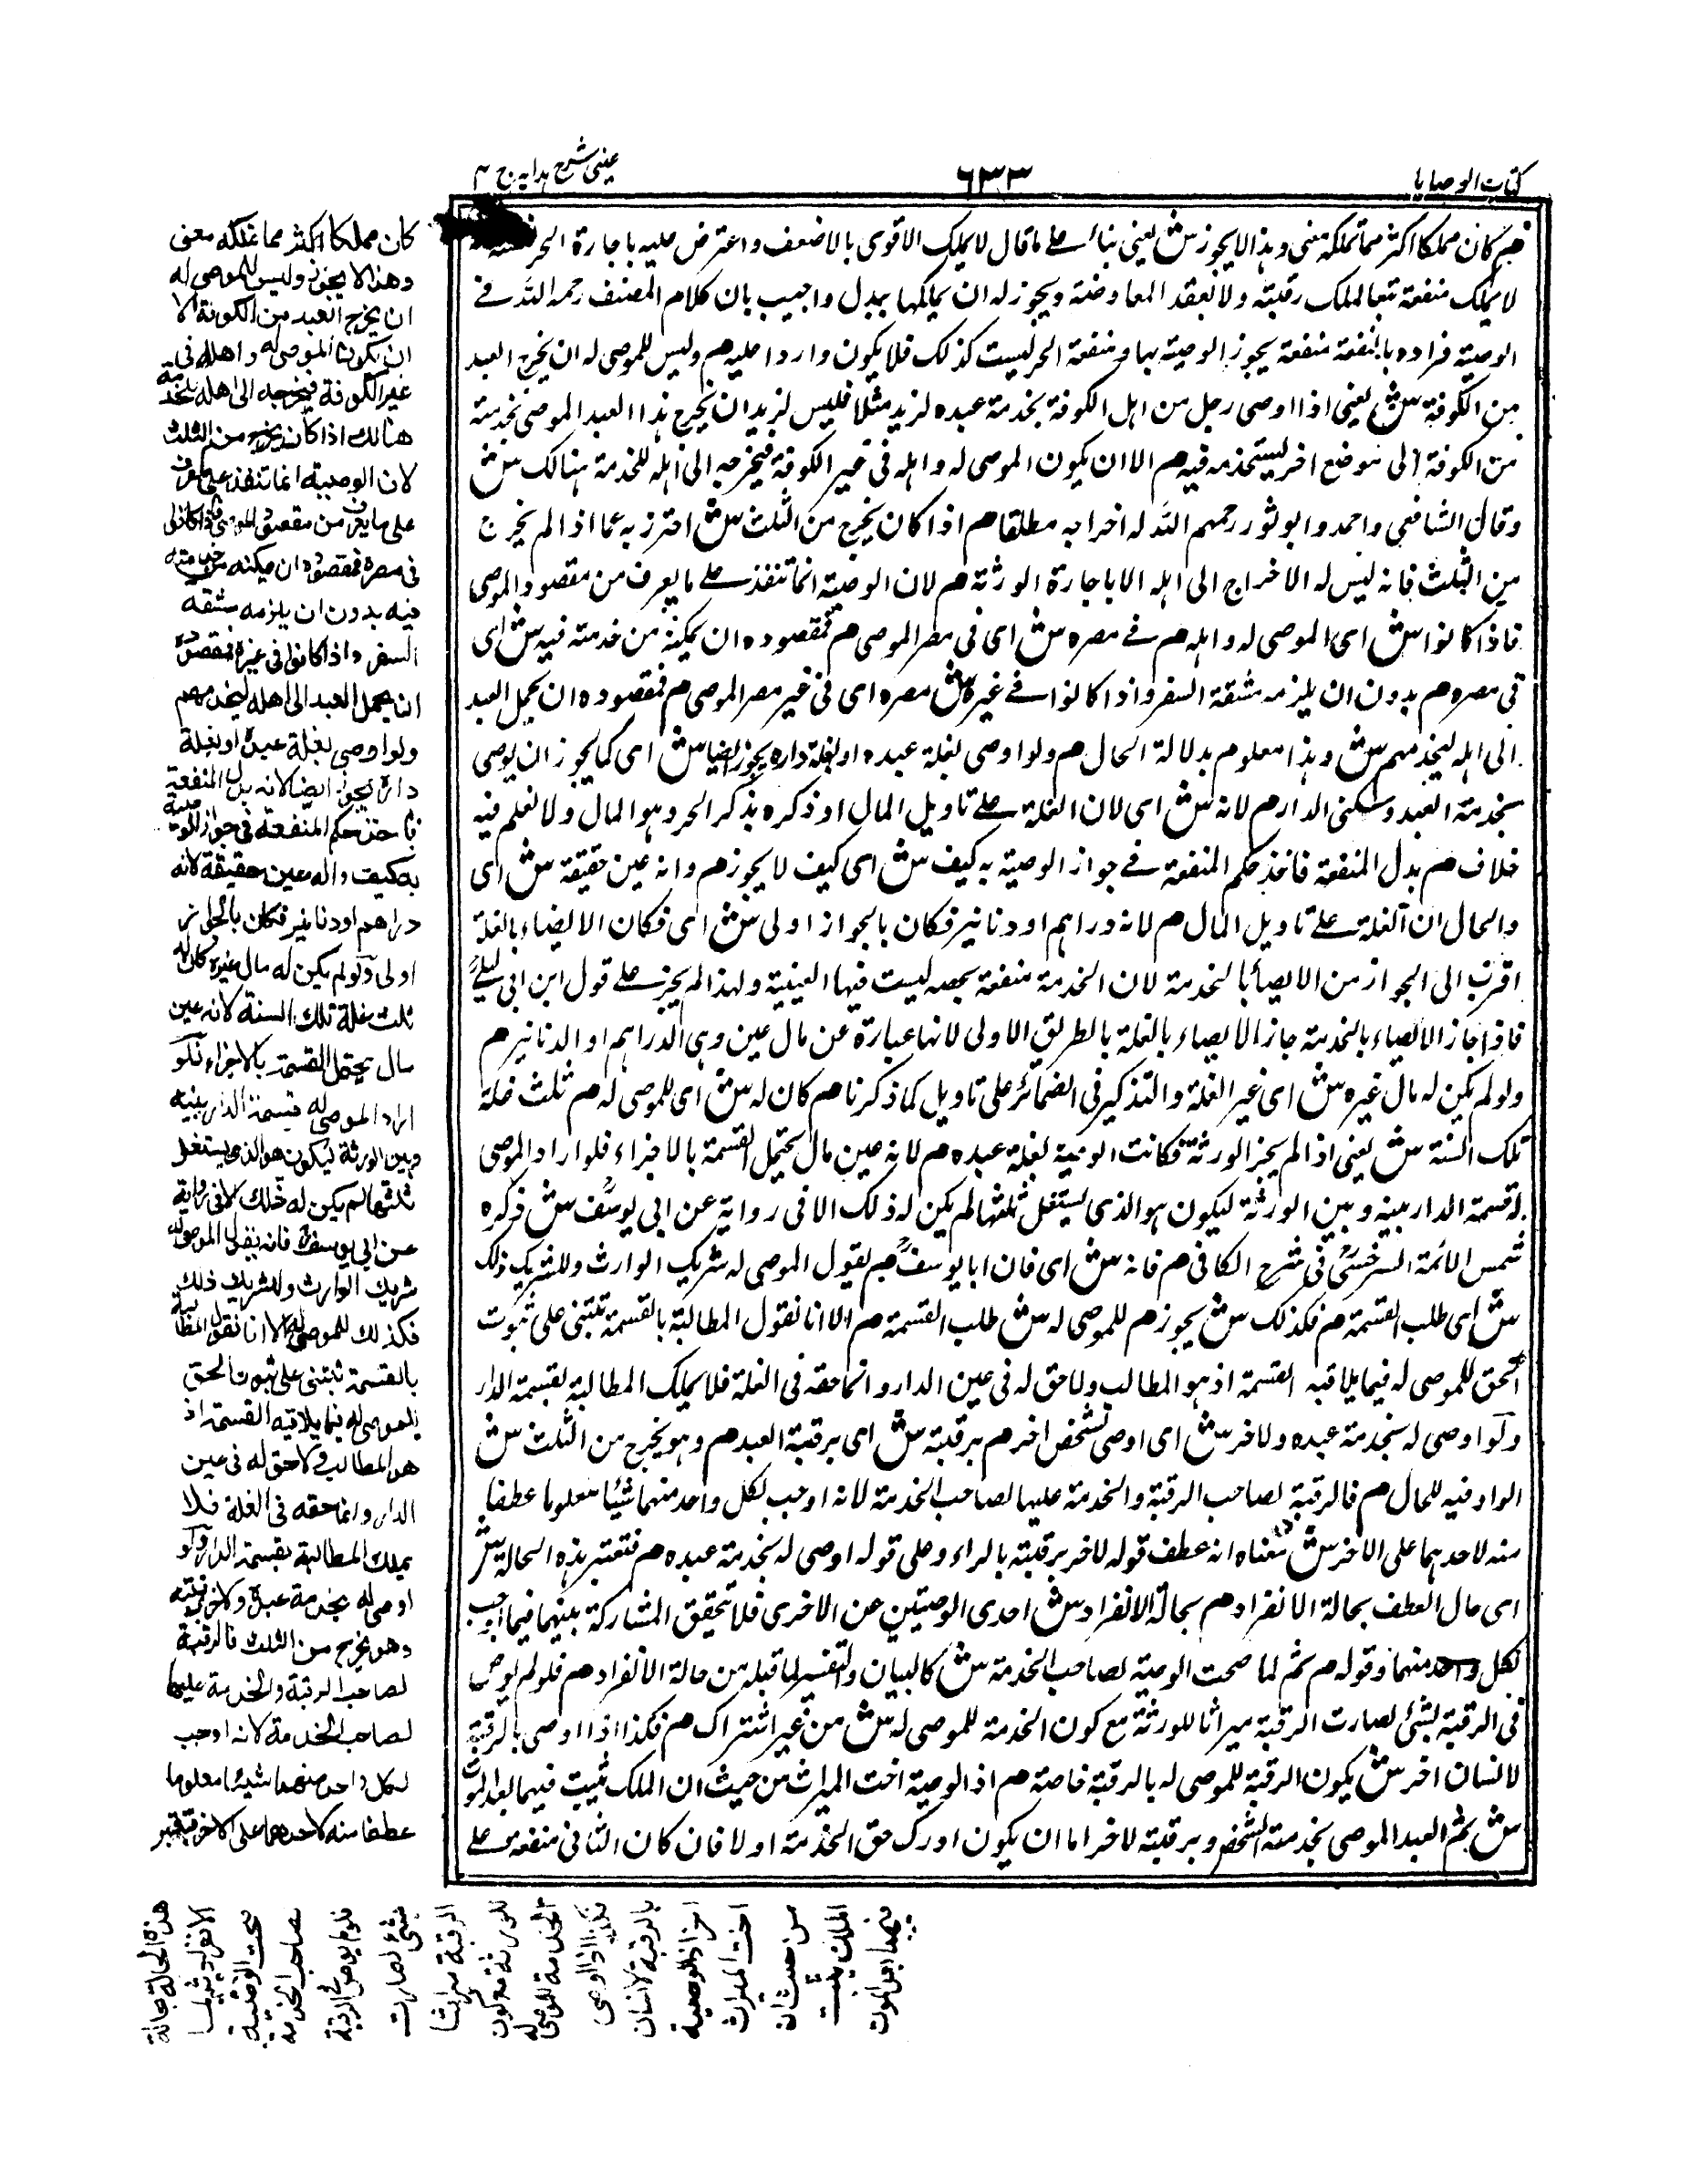 كتاب الوصايا
٦٣٣
عينى شرح هدايه ج ٤
هم كان مملكا اكثر مما تملكه معنى وهذا لا يجوز ش يعنى بناء على ما قال لا يملك الاقوى بالاضعف واعترض عليه باجارة الحر
لا يملك منفعة تبعا لملك رقبته ولا بعقد المعاوضة ويجوز له ان يملكها ببدل واجيب بان كلام المصنف رحمه الله فى
الوصية فراده بالمنفعة منفعة يجوز الوصية بها ومنفعة الحر ليست كذلك فلا يكون واردا عليه هم وليس للموصى له ان يخرج العبد
من الكوفة ش يعنى اذا اوصى رجل من اهل الكوفة بخدمة عبده لزيد مثلا فليس لزيد ان يخرج هذا العبد الموصى بخدمته
من الكوفة الى موضع اخر ليستخدمه فيه هم الا ان يكون الموصى له واهله فى غير الكوفة فيخرجه الى اهله للخدمة هنالك ش
وقال الشافعى واحمد وابو ثور رحمهم الله له اخراجه مطلقا هم اذا كان يخرج من الثلث ش احترز به عما اذا لم يخرج
من الثلث فانه ليس له الاخراج الى اهله الا باجارة الورثة هم لان الوصية انما تنفذ على ما يعرف من مقصود الموصى
فاذا كانوا ش اى الموصى له واهله هم فى مصره ش اى فى مصر الموصى هم فمقصوده ان يمكنه من خدمته فيه ش اى
فى مصره هم بدون ان يلزمه مشقة السفر واذا كانوا فى غيره ش مصره اى فى غير مصر الموصى هم فمقصوده ان يحمل العبد
الى اهله ليخدمهم ش وهذا معلوم بدلالة الحال هم ولو اوصى بغلة عبده او بغلة داره يجوز ايضا ش اى كما يجوز ان يوصى
بخدمة العبد وسكنى الدار هم لانه ش اى لان الغلة على تاويل المال او ذكره بذكر الحر وهو المال ولا نعلم فيه
خلاف هم بدل المنفعة فاخذ حكم المنفعة فى جواز الوصية به كيف ش اى كيف لا يجوز هم وانه عين حقيقة ش اى
والحال ان الغلة على تاويل المال هم لانه دراهم او دنانير فكان بالجواز اولى ش اى فكان الايصاء بالغلة
اقرب الى الجواز من الايصاء بالخدمة لان الخدمة منفعة بحصه ليست فيها العينية ولهذا لم يجز على قول ابن ابى ليلى
فاذا جاز الايصاء بالخدمة جاز الايصاء بالغلة بالطريق الاولى لانها عبارة عن مال عين وهى الدراهم او الدنانير هم
ولو لم يكن له مال غيره ش اى غير الغلة والتذكير فى الضمائر على تاويل كما ذكرنا هم كان له ش اى للموصى له هم ثلث غلة
تلك السنة ش يعنى اذا لم يجز الورثة فكانت الوصية بغلة عبده هم لانه عين مال يحتمل القسمة بالاجزاء فلو اراد الموصى
له قسمة الدار بينه وبين الورثة ليكون هو الذى يستغل ثلثها لم يكن له ذلك الا فى رواية عن ابى يوسف ش ذكره
شمس الائمة السرخسى فى شرح الكافى هم فانه ش اى فان ابا يوسف هم يقول الموصى له شريك الوارث وللشريك ذلك
ش اى طلب القسمة هم فكذلك ش يجوز هم للموصى له ش طلب القسمة هم الا انا نقول المطالبة بالقسمة تبتنى على ثبوت
الحق للموصى له فيما يلاقيه القسمة اذ هو المطالب ولا حق له فى عين الدار وانما حقه فى الغلة فلا يملك المطالبة بقسمة الدار
ولو اوصى له بخدمة عبده ولاخر ش اى اوصى لشخص اخر هم برقبته ش اى برقبة العبد هم وهو يخرج من الثلث ش
الواو فيه للحال هم فالرقبة لصاحب الرقبة والخدمة عليها لصاحب الخدمة لانه اوجب لكل واحد منهما شيئا معلوما عطفا
منه لاحدهما على الاخر ش معناه انه عطف قوله لاخر برقبته بالراء وعلى قوله اوصى له بخدمة عبده هم فتعتبر هذه الحالة ش
اى حال العطف بحالة الانفراد هم بحالة الانفراد ش احدى الوصيتين عن الاخرى فلا تحقق المشاركة بينهما فيما اوجب
لكل واحد منهما وقوله هم ثم لما صحت الوصية لصاحب الخدمة ش كالبيان والتفسير لما قبله من حالة الانفراد هم فلو لم يوص
فى الرقبة بشئ لصارت الرقبة ميراثا للورثة مع كون الخدمة للموصى له ش من غير اشتراك هم فكذا اذا اوصى بالرقبة
لانسان اخر ش يكون الرقبة للموصى له بالرقبة خاصة هم اذ الوصية اخت الميراث من حيث ان الملك يثبت فيهما بعد الموت
ش ثم العبد الموصى بخدمته لشخص وبرقبته لاخر اما ان يكون ادرك حق الخدمة اولا فان كان الثانى منفعة على
كان مملكا اكثر مما تملكه معنى
وهذا لا يجوز وليس للموصى له
ان يخرج العبد من الكوفة الا
ان يكون الموصى له واهله فى
غير الكوفة فيخرجه الى اهله للخدمة
هنالك اذا كان يخرج من الثلث
لان الوصية انما تنفذ على
على ما يعرف من مقصود الموصى فاذا كانوا
فى مصره فمقصوده ان يمكنه من خدمته
فيه بدون ان يلزمه مشقة
السفر واذا كانوا فى غيره فمقصوده
ان يحمل العبد الى اهله ليخدمهم
ولو اوصى بغلة عبده او بغلة
داره يجوز ايضا لانه بدل المنفعة
فاخذ حكم المنفعة فى جواز الوصية
به كيف وانه عين حقيقة لانه
دراهم او دنانير فكان بالجواز
اولى ولو لم يكن له مال غيره كان له
ثلث غلة تلك السنة لانه عين
مال يحتمل القسمة بالاجزاء فلو
اراد الموصى له قسمة الدار بينه
وبين الورثة ليكون هو الذى يستغل
ثلثها لم يكن له ذلك الا فى رواية
عن ابى يوسف فانه يقول الموصى له
شريك الوارث وللشريك ذلك
فكذلك للموصى له الا انا نقول المطالبة
بالقسمة تبتنى على ثبوت الحق
للموصى له فيما يلاقيه القسمة اذ
هو المطالب ولا حق له فى عين
الدار وانما حقه فى الغلة فلا
يملك المطالبة بقسمة الدار ولو
اوصى له بخدمة عبده ولاخر برقبته
وهو يخرج من الثلث فالرقبة
لصاحب الرقبة والخدمة عليها
لصاحب الخدمة لانه اوجب
لكل واحد منهما شيئا معلوما
عطفا منه لاحدهما على الاخر فتعتبر
هذه الحالة بحالة
الانفراد ثم لما
صحت الوصية
لصاحب الخدمة
فلو لم يوص فى الرقبة
بشئ لصارت
الرقبة ميراثا
للورثة مع كون
الخدمة للموصى له
فكذا اذا اوصى
بالرقبة لانسان
اخر اذ الوصية
اخت الميراث
من حيث ان
الملك يثبت
فيهما بعد الموت